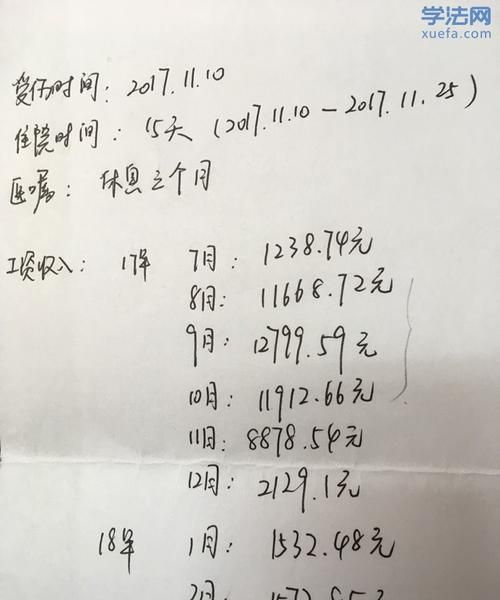 学法网
xuefa.com
受伤时间：2017.11.10
住院时间：15天（2017.11.10－2017.11.25）
医嘱：休息三个月
工资收入：17年 7月：1238.74元
8月：11668.72元
9月：12799.59元
10月：11912.66元
11月：8878.54元
12月：2129.1元
18年 1月：1532.48元
2月：